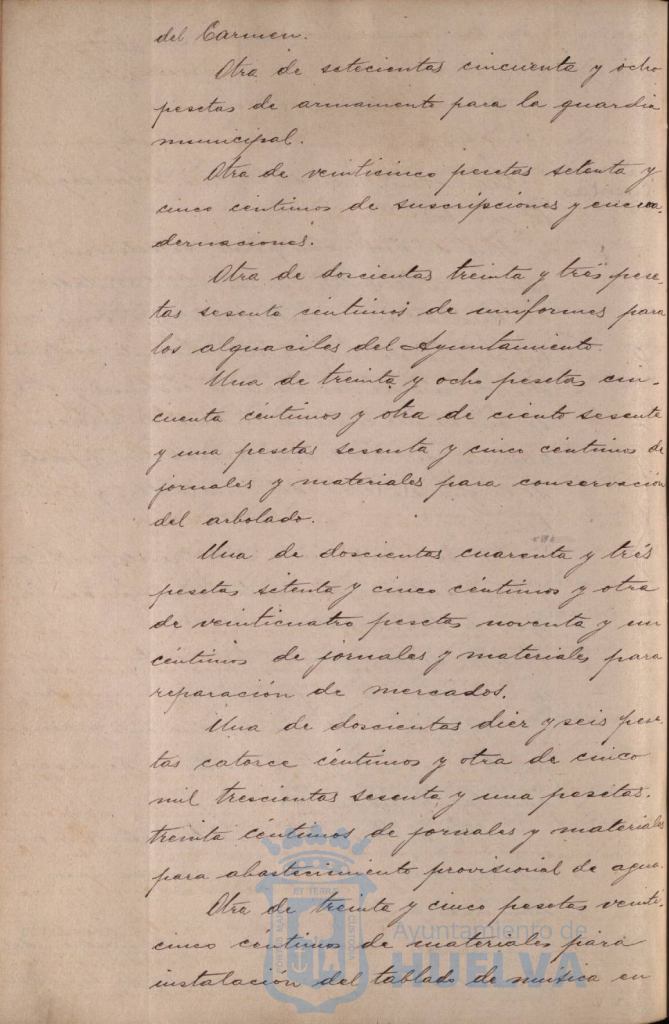 del Carmen.
Otra de setecientas cincuenta y ocho
pesetas de armamento para la guardia
municipal.
Otra de veinticinco pesetas setenta y
cinco céntimos de suscripciones y encua-
dernaciones.
Otra de doscientas treinta y tres pese-
tas sesenta céntimos de uniformes para
los alguaciles del Ayuntamiento.
Una de treinta y ocho pesetas cin-
cuenta céntimos y otra de ciento sesenta
y una pesetas sesenta y cinco céntimos de
jornales y materiales para conservación
del arbolado.
Una de doscientas cuarenta y trés
pesetas setenta y cinco céntimos y otra
de veinticuatro pesetas noventa y un
céntimos de jornales y materiales para
reparación de mercados.
Una de doscientas diez y seis pese-
tas catorce céntimos y otra de cinco
mil trescientas sesenta y una pesetas
treinta céntimos de jornales y materiales
para abastecimiento provisional de agua.
Otra de treinta y cinco pesetas veinti-
cinco céntimos de materiales para
instalación del tablado de música en
Ayuntamiento de
HUELVA